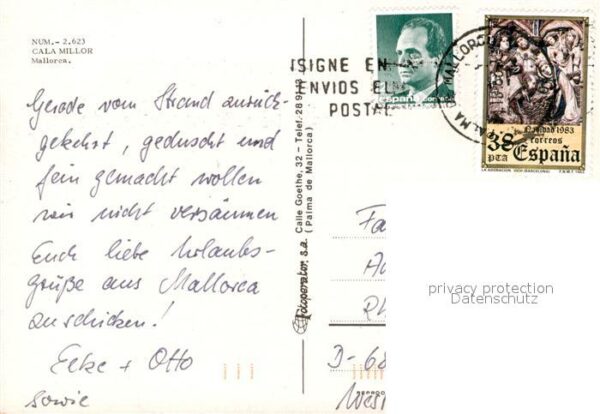 NUM.- 2.623
CALA MILLOR
Mallorca.
Gerade vom Strand zurück-
gekehrt, geduscht und
fein gemacht wollen
wir nicht versäumen
Euch liebe Urlaubs-
grüße aus Mallorca
zu schicken!
Elke + Otto
sowie
Fotoperator, s.a. Calle Goethe, 32 - Telef. 28 91
(Palma de Mallorca)
SIGNE EN
ENVIOS EL
POSTAL
PALMA DE MALLORCA
España correos
Navidad 1983
correos
38
PTA
España
LA ADORACION. VICH (BARCELONA)
F.N.M.T. 1983
Fa
D-68
West
privacy protection
Datenschutz